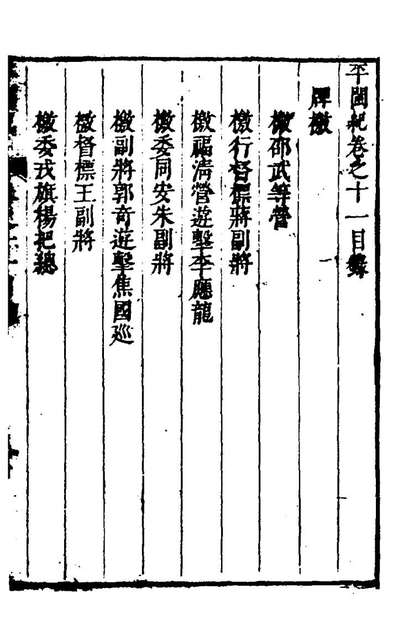 平閩紀卷之十一目錄
牌檄
檄邵武等營
檄行督標蔣副將
檄福清營遊擊李應龍
檄委同安朱副將
檄副將郭奇遊擊焦國廵
檄督標王副將
檄委戎旗楊把總